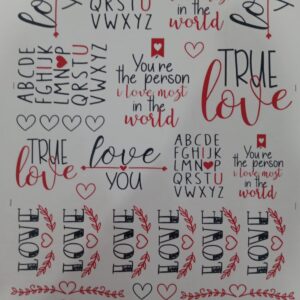 love
YOU
ABCDE
FGHIJK
LMNOP
QRSTU
VWXYZ
QRSTU
VWXYZ
You're
the person
i love most
in the
world
TRUE
love
TRUE
love
love
YOU
ABCDE
FGHIJK
LMNOP
QRSTU
VWXYZ
You're
the person
i love most
in the
world
LOVE
LOVE
LOVE
LOVE
LOVE
LOVE